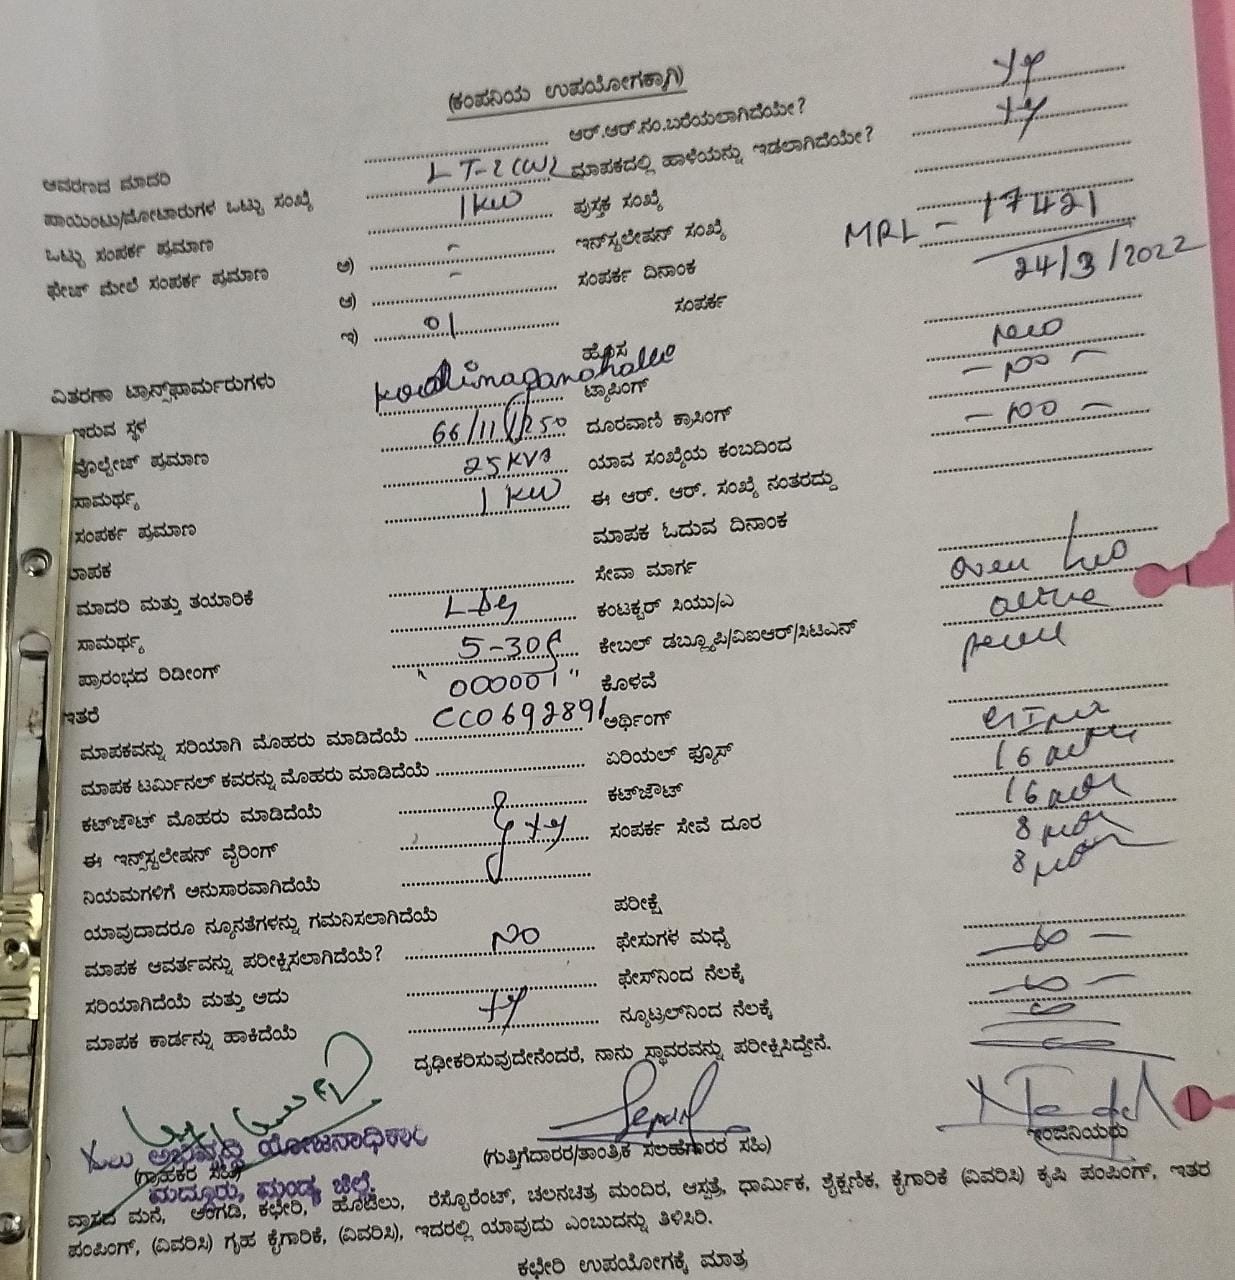 (ಕಂಪನಿಯ ಉಪಯೋಗಕ್ಕಾಗಿ)
ಆರ್.ಆರ್.ನಂ.ಬರೆಯಲಾಗಿದೆಯೇ?
ಆವರಣದ ಮಾದರಿ LT-2 ಮಾಪಕದಲ್ಲಿ ಹಾಳೆಯನ್ನು ಇಡಲಾಗಿದೆಯೇ?
ಪಾಯಿಂಟು/ಮೋಟಾರುಗಳ ಒಟ್ಟು ಸಂಖ್ಯೆ 1KW ಪುಸ್ತಕ ಸಂಖ್ಯೆ
ಒಟ್ಟು ಸಂಪರ್ಕ ಪ್ರಮಾಣ ಅ) - ಇನ್‌ಸ್ಟಲೇಷನ್ ಸಂಖ್ಯೆ MRL - 17421
ಫೇಜ್ ಮೇಲೆ ಸಂಪರ್ಕ ಪ್ರಮಾಣ ಆ) - ಸಂಪರ್ಕ ದಿನಾಂಕ 24/3/2022
ಇ) 01 ಸಂಪರ್ಕ
ಹೊಸ new
ವಿತರಣಾ ಟ್ರಾನ್ಸ್‌ಫಾರ್ಮರುಗಳು ಟ್ಯಾಪಿಂಗ್
ಇರುವ ಸ್ಥಳ 66/11/ 250 ದೂರವಾಣಿ ಕ್ರಾಸಿಂಗ್
ವೋಲ್ಟೇಜ್ ಪ್ರಮಾಣ 25KVA ಯಾವ ಸಂಖ್ಯೆಯ ಕಂಬದಿಂದ
ಸಾಮರ್ಥ್ಯ 1 KW ಈ ಆರ್. ಆರ್. ಸಂಖ್ಯೆ ನಂತರದ್ದು
ಸಂಪರ್ಕ ಪ್ರಮಾಣ ಮಾಪಕ ಓದುವ ದಿನಾಂಕ
ಮಾಪಕ ಸೇವಾ ಮಾರ್ಗ
ಮಾದರಿ ಮತ್ತು ತಯಾರಿಕೆ L&G ಕಂಟಕ್ಟರ್ ಸಿಯು/ಎ
ಸಾಮರ್ಥ್ಯ 5-30A ಕೇಬಲ್ ಡಬ್ಲ್ಯೂಪಿ/ವಿಐಆರ್/ಸಿಟಿಎಸ್
ಪ್ರಾರಂಭದ ರಿಡೀಂಗ್ "000001" ಕೊಳವೆ
ಇತರೆ CC0692891 ಅರ್ಥಿಂಗ್
ಮಾಪಕವನ್ನು ಸರಿಯಾಗಿ ಮೊಹರು ಮಾಡಿದೆಯೆ
ಮಾಪಕ ಟರ್ಮಿನಲ್ ಕವರನ್ನು ಮೊಹರು ಮಾಡಿದೆಯೆ ಏರಿಯಲ್ ಫ್ಯೂಸ್ 16
ಕಟ್‌ಔಟ್ ಮೊಹರು ಮಾಡಿದೆಯೆ ಕಟ್‌ಔಟ್ 16
ಈ ಇನ್‌ಸ್ಟಲೇಷನ್ ವೈರಿಂಗ್ ಸಂಪರ್ಕ ಸೇವೆ ದೂರ 8
ನಿಯಮಗಳಿಗೆ ಅನುಸಾರವಾಗಿದೆಯೆ 8
ಯಾವುದಾದರೂ ನ್ಯೂನತೆಗಳನ್ನು ಗಮನಿಸಲಾಗಿದೆಯೆ ಪರೀಕ್ಷೆ
ಮಾಪಕ ಆವರ್ತವನ್ನು ಪರೀಕ್ಷಿಸಲಾಗಿದೆಯೆ? NO ಫೇಸುಗಳ ಮಧ್ಯೆ
ಸರಿಯಾಗಿದೆಯೆ ಮತ್ತು ಅದು ಫೇಸ್‌ನಿಂದ ನೆಲಕ್ಕೆ
ಮಾಪಕ ಕಾರ್ಡನ್ನು ಹಾಕಿದೆಯೆ ನ್ಯೂಟ್ರಲ್‌ನಿಂದ ನೆಲಕ್ಕೆ
ದೃಢೀಕರಿಸುವುದೇನೆಂದರೆ, ನಾನು ಸ್ಥಾವರವನ್ನು ಪರೀಕ್ಷಿಸಿದ್ದೇನೆ.
ಅಭಿವೃದ್ಧಿ ಯೋಜನಾಧಿಕಾರಿ
(ಗ್ರಾಹಕರ ಸಹಿ) (ಗುತ್ತಿಗೆದಾರರ/ತಾಂತ್ರಿಕ ಸಲಹೆಗಾರರ ಸಹಿ) ಇಂಜಿನಿಯರು
ಮದ್ದೂರು, ಮಂಡ್ಯ ಜಿಲ್ಲೆ.
ವಾಸದ ಮನೆ, ಅಂಗಡಿ, ಕಛೇರಿ, ಹೊಟೆಲು, ರೆಸ್ಟೊರೆಂಟ್, ಚಲನಚಿತ್ರ ಮಂದಿರ, ಆಸ್ಪತ್ರೆ, ಧಾರ್ಮಿಕ, ಶೈಕ್ಷಣಿಕ, ಕೈಗಾರಿಕೆ (ವಿವರಿಸಿ) ಕೃಷಿ ಪಂಪಿಂಗ್, ಇತರ
ಪಂಪಿಂಗ್, (ವಿವರಿಸಿ) ಗೃಹ ಕೈಗಾರಿಕೆ, (ವಿವರಿಸಿ), ಇದರಲ್ಲಿ ಯಾವುದು ಎಂಬುದನ್ನು ತಿಳಿಸಿರಿ.
ಕಛೇರಿ ಉಪಯೋಗಕ್ಕೆ ಮಾತ್ರ